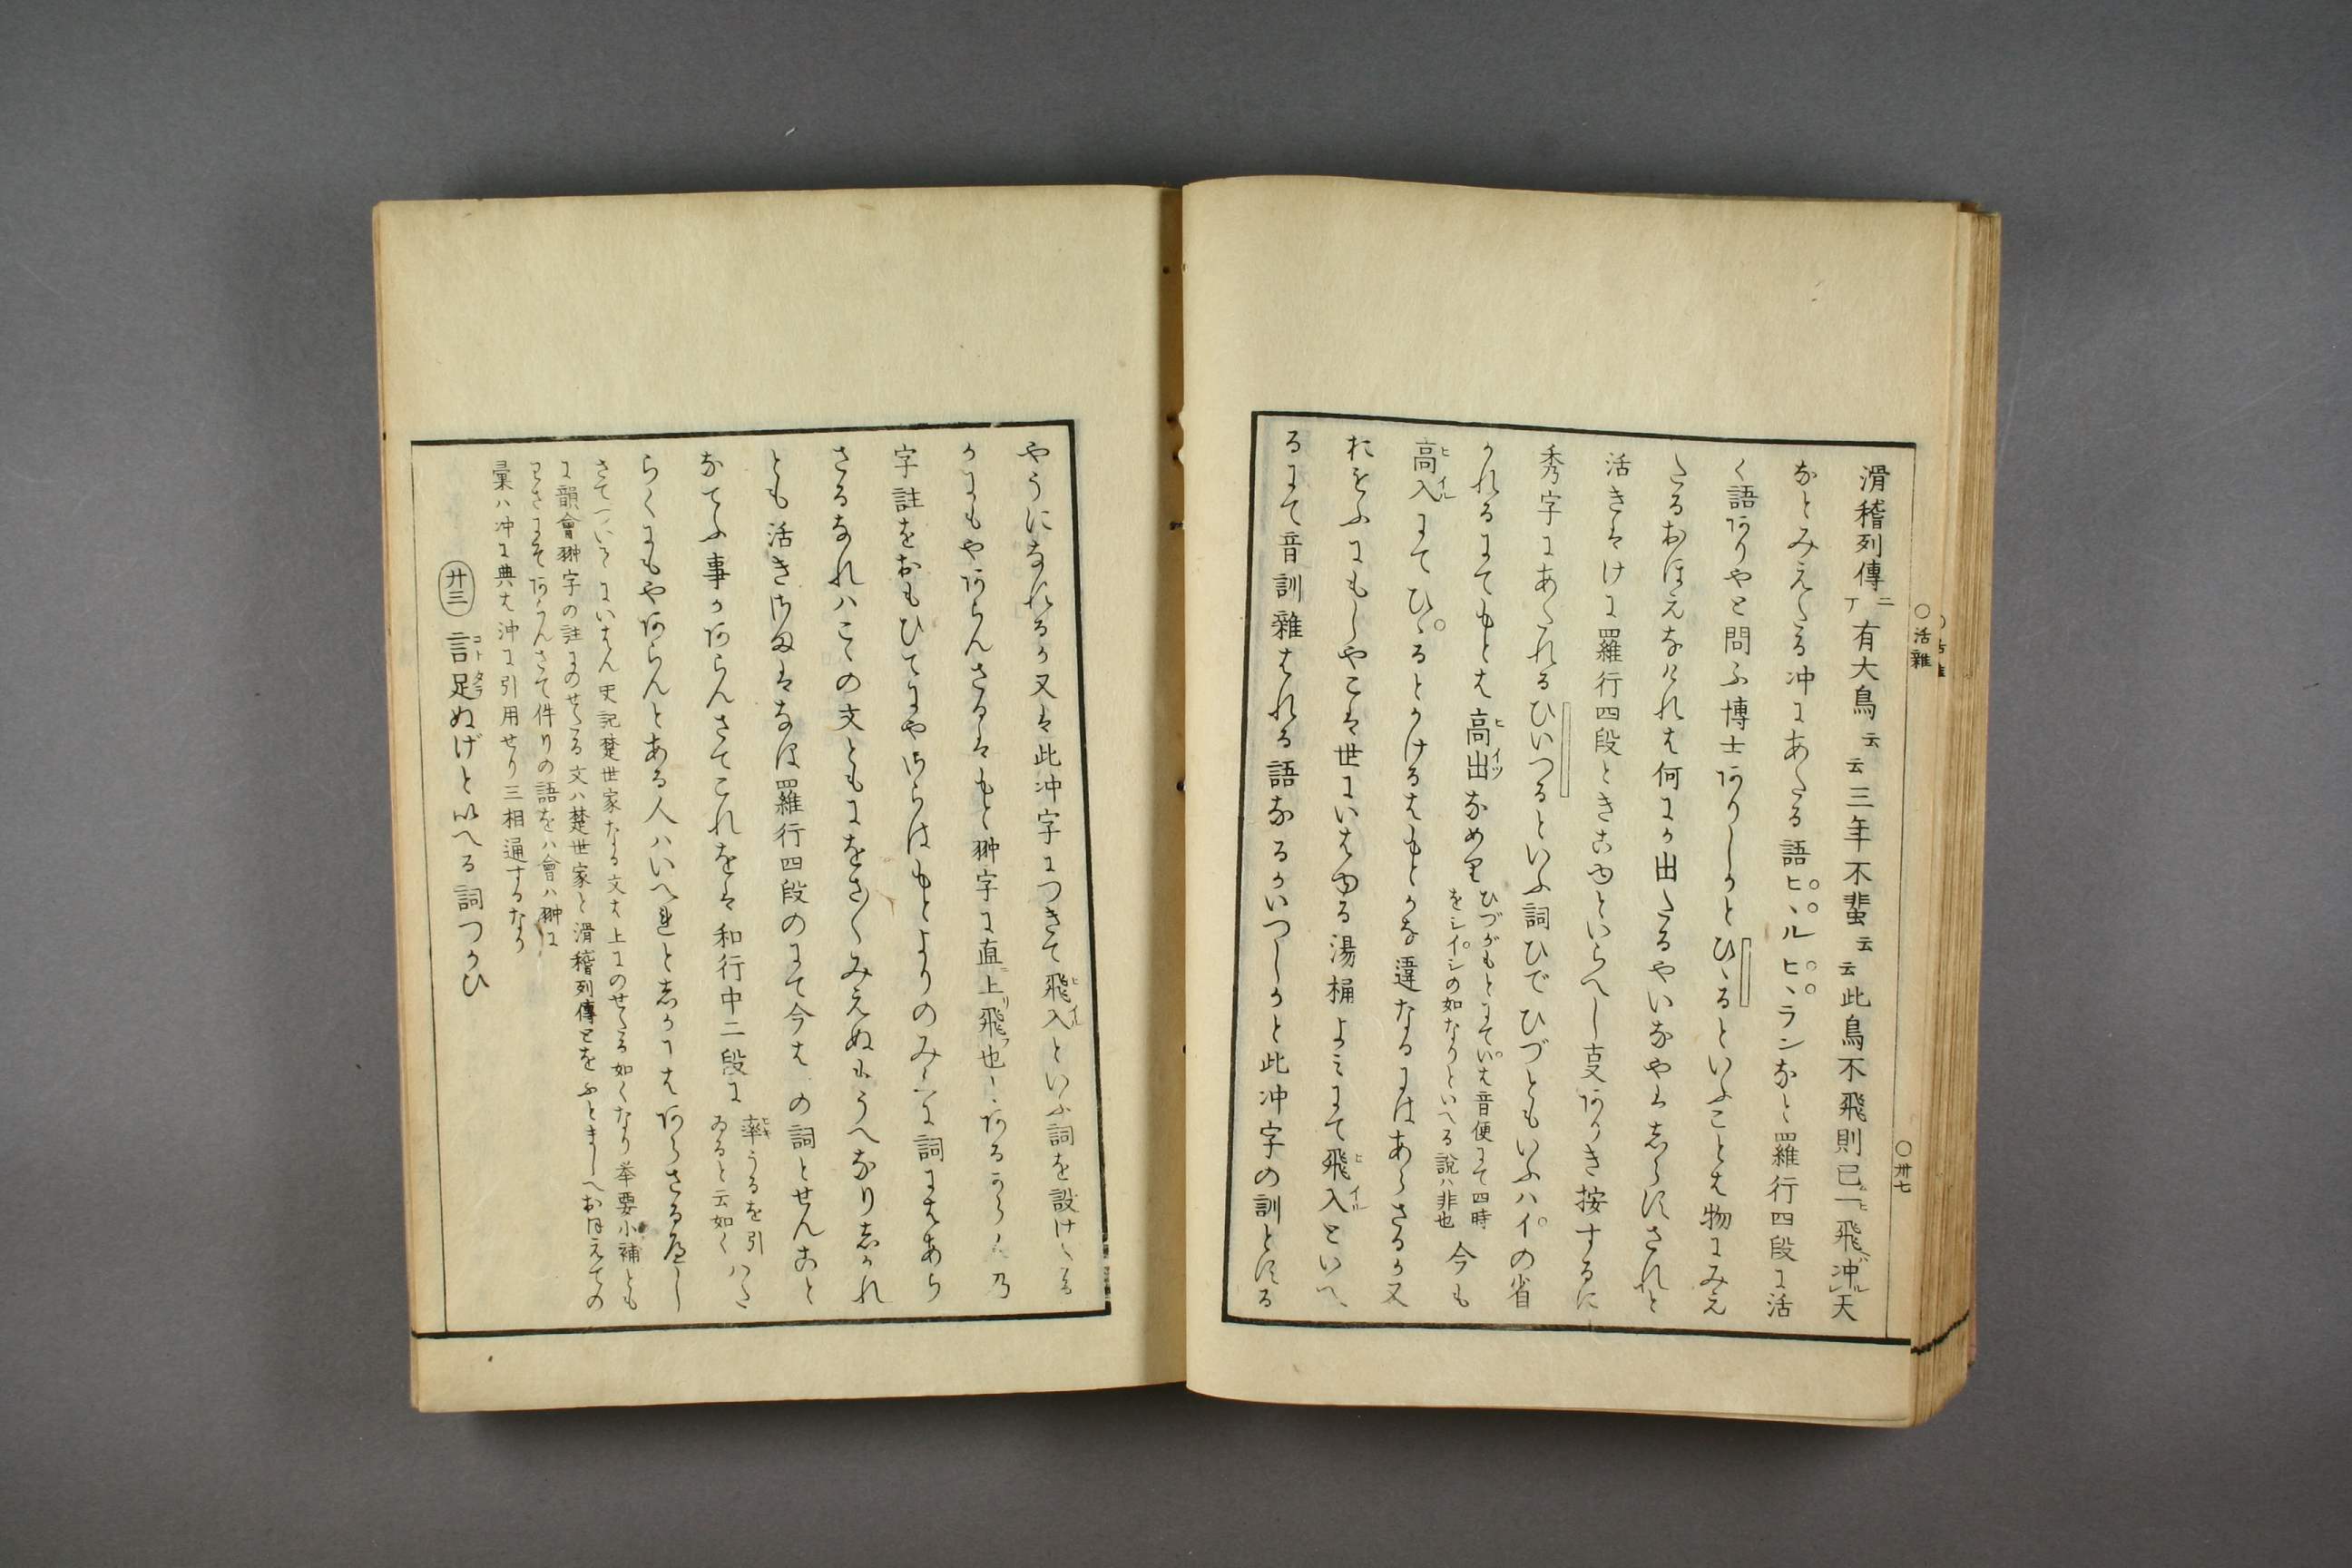 ○活雜
○卅七
滑稽列傳ニ有大鳥云云三年不蜚云云此鳥不飛則已一飛冲天
なとみえたる冲にあたる語ヒヽルヒヽランなと羅行四段に活
く語ありやと問ふ博士ありしかとひゝるといふことは物にみえ
たるおほえなけれは何にか出たるやいなや志らすされと
活きはけに羅行四段ときこゆといらへし支ありき按するに
秀字にあたれるひいつるといふ詞ひでひづともいふハイの省
かれるにてもとは高出なめり
ひづがもとにていは音便にて四時
をシイシの如なりといへる説ハ非也
今も
高入にてひゝるとかけるはもとかな違なるにはあらさるか又
たとふにもしやこは世にいはゆる湯桶よミにて飛入といへ
るにて音訓雜はれる語なるかいつしかと此冲字の訓とする
やうになれるか又は此冲字につきて飛入といふ詞を設けたる
かにもやあらんさるはもと翀字に直上飛也
字註をおもひてにや
さるなれハこゝの文ともにをさ〳〵みえぬもうへなり志かれ
とも活きさまはなほ羅行四段のにて今は
の詞とせんこと
なてふ事かあらんさてこれをは和行中二段に
率うるを引
ゐると云如く
はた
らくにもやあらんとある人ハいへれと志かにはあらさるへし
さてついてにいはん史記楚世家なる文は上にのせたる如くなり挙要小補とも
に韻會翀字の註にのせたる文ハ楚世家と滑稽列傳とを
さて件りの語をハ會ハ翀に
彙ハ冲に典は沖に引用せり三相通するなり
廿三 言足ぬげといへる詞つかひ